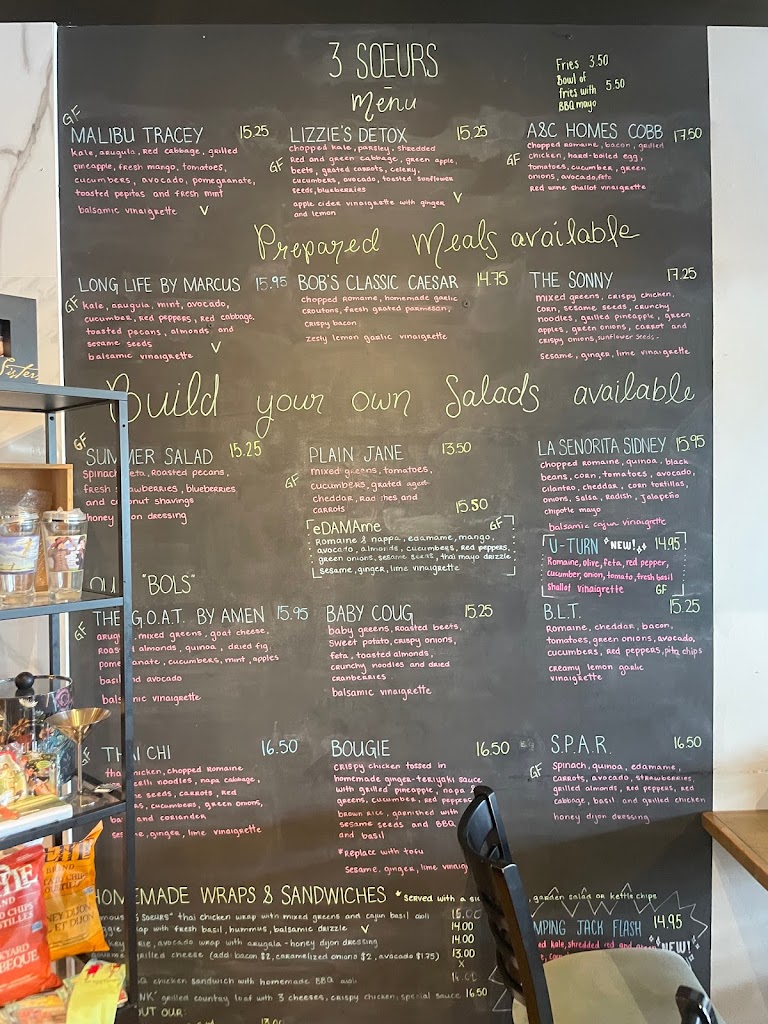 3 SOEURS
Menu
Fries 3.50
Bowl of
fries with 5.50
BBQ mayo
GF
MALIBU TRACEY 15.25
kale, arugula, red cabbage, grilled
pineapple, fresh mango, tomatoes,
cucumbers, avocado, pomegranate,
toasted pepitas and fresh mint
balsamic vinaigrette V
LIZZIE'S DETOX 15.25
chopped kale, parsley, shredded
GF Red and green cabbage, green apple,
beets, grated carrots, celery,
cucumbers, avocado, toasted sunflower
seeds, blueberries
apple cider vinaigrette with ginger V
and lemon
A&C HOMES COBB 17.50
chopped romaine, bacon, grilled
GF chicken, hard-boiled egg,
tomatoes, cucumber, green
onions, avocado, feta
red wine shallot vinaigrette
Prepared Meals available
LONG LIFE BY MARCUS 15.95
GF kale, arugula, mint, avocado,
cucumber, red peppers, red cabbage,
toasted pecans, almonds and
sesame seeds
balsamic vinaigrette V
BOB'S CLASSIC CAESAR 14.75
chopped romaine, homemade garlic
croutons, fresh grated parmesan,
crispy bacon
zesty lemon garlic vinaigrette
THE SONNY 17.25
mixed greens, crispy chicken,
corn, sesame seeds, crunchy
noodles, grilled pineapple, green
apples, green onions, carrot and
crispy onions, sunflower seeds.
sesame, ginger, lime vinaigrette
Build your own Salads available
GF
SUMMER SALAD 15.25
spinach, feta, roasted pecans,
fresh strawberries, blueberries
and coconut shavings
honey dijon dressing
PLAIN JANE 13.50
mixed greens, tomatoes,
GF cucumbers, grated aged
cheddar, radishes and
carrots
15.50
eDAMAme GF
Romaine & nappa, edamame, mango,
avocato, almonds, cucumbers, red peppers,
green onions, sesame seeds, thai mayo drizzle
sesame, ginger, lime vinaigrette
LA SENORITA SIDNEY 15.95
chopped romaine, quinoa, black
beans, corn, tomatoes, avocado,
cilantro, cheddar, corn tortillas,
onions, salsa, radish, jalapeño
chipotle mayo
balsamic cajun vinaigrette
U-TURN *NEW! 14.95
Romaine, olive, feta, red pepper,
cucumber, onion, tomato, fresh basil
shallot vinaigrette GF
"BOLS"
GF
THE G.O.A.T. BY AMEN 15.95
mixed greens, goat cheese,
almonds, quinoa, dried fig,
cucumbers, mint, apples
basil and avocado
balsamic vinaigrette
BABY COUG 15.25
baby greens, roasted beets,
sweet potato, crispy onions,
feta, toasted almonds,
crunchy noodles and dried
cranberries
balsamic vinaigrette
B.L.T. 15.25
Romaine, cheddar, bacon,
tomatoes, green onions, avocado,
cucumbers, red peppers, pita chips
creamy lemon garlic
vinaigrette
THAI CHI 16.50
thai chicken, chopped romaine
noodles, napa cabbage,
seeds, carrots, red
cucumbers, green onions,
and coriander
ginger, lime vinaigrette
BOUGIE 16.50
crispy chicken tossed in
homemade ginger-teriyaki sauce
with grilled pineapple, napa &
greens, cucumber, red peppers
brown rice, garnished with
sesame seeds and BBQ
and basil
*Replace with tofu
sesame, ginger, lime
S.P.A.R. 16.50
spinach, quinoa, edamame,
GF carrots, avocado, strawberries,
grilled almonds, red peppers, red
cabbage, basil and grilled chicken
honey dijon dressing
HOMEMADE WRAPS & SANDWICHES *served with a garden salad or kettle chips
SOEURS" thai chicken wrap with mixed greens and cajun basil aioli 15.00
wrap with fresh basil, hummus, balsamic drizzle V 14.00
brie, avocado wrap with arugula - honey dijon dressing 14.00
grilled cheese (add: bacon $2, caramelized onions $2, avocado $1.75) 13.00
chicken sandwich with homemade BBQ aioli
grilled country loaf with 3 cheeses, crispy chicken, special sauce 16.50
OUT OUR:
JACK FLASH 14.95
kale, shredded red and green
NEW!
HONEY DIJON